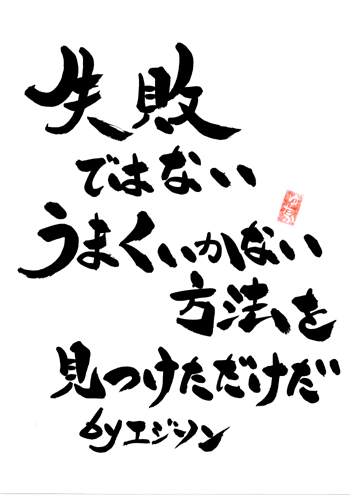 失敗
ではない
うまくいかない
方法を
見つけただけだ
byエジソン